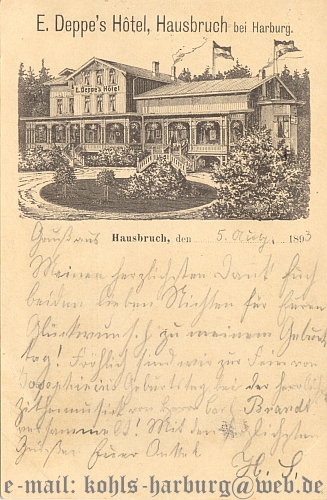 E. Deppe's Hôtel, Hausbruch bei Harburg.
E. Deppe's Hôtel
Gruß aus Hausbruch, den 5. Aug. 1893
Meinen herzlichsten Dank Euch
beiden lieben Nichten für Euren
Glückwunsch zu meinem Geburts
tag! Fröhlich sind wir zur Feier von
Geburtstag bei der
Zithermusik von Herrn Brandt
Mit den herzlichsten
Grüßen Euer Onkel
H. S.
e-mail: kohls-harburg@web.de